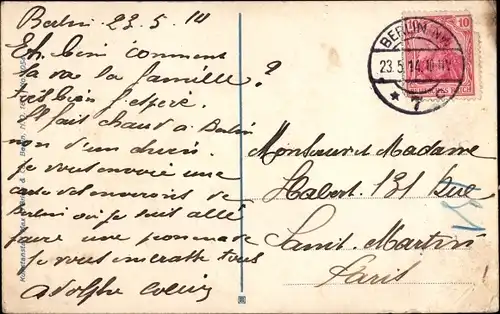 Berlin 23.5.14
Eh bien comment
ça va la famille?
très bien j'espère.
Il fait chaud a Berlin
non d'un chien.
Je vous envoie une
carte des environs de
Berlin où je suis allé
faire une promenade
Je vous embrasse tous
Adolphe
BERLIN NW.
23.5.14.
* 7 c
10
DEUTSCHES REICH
Monsieur et Madame
Habert 131 Rue
Saint Martin
Paris